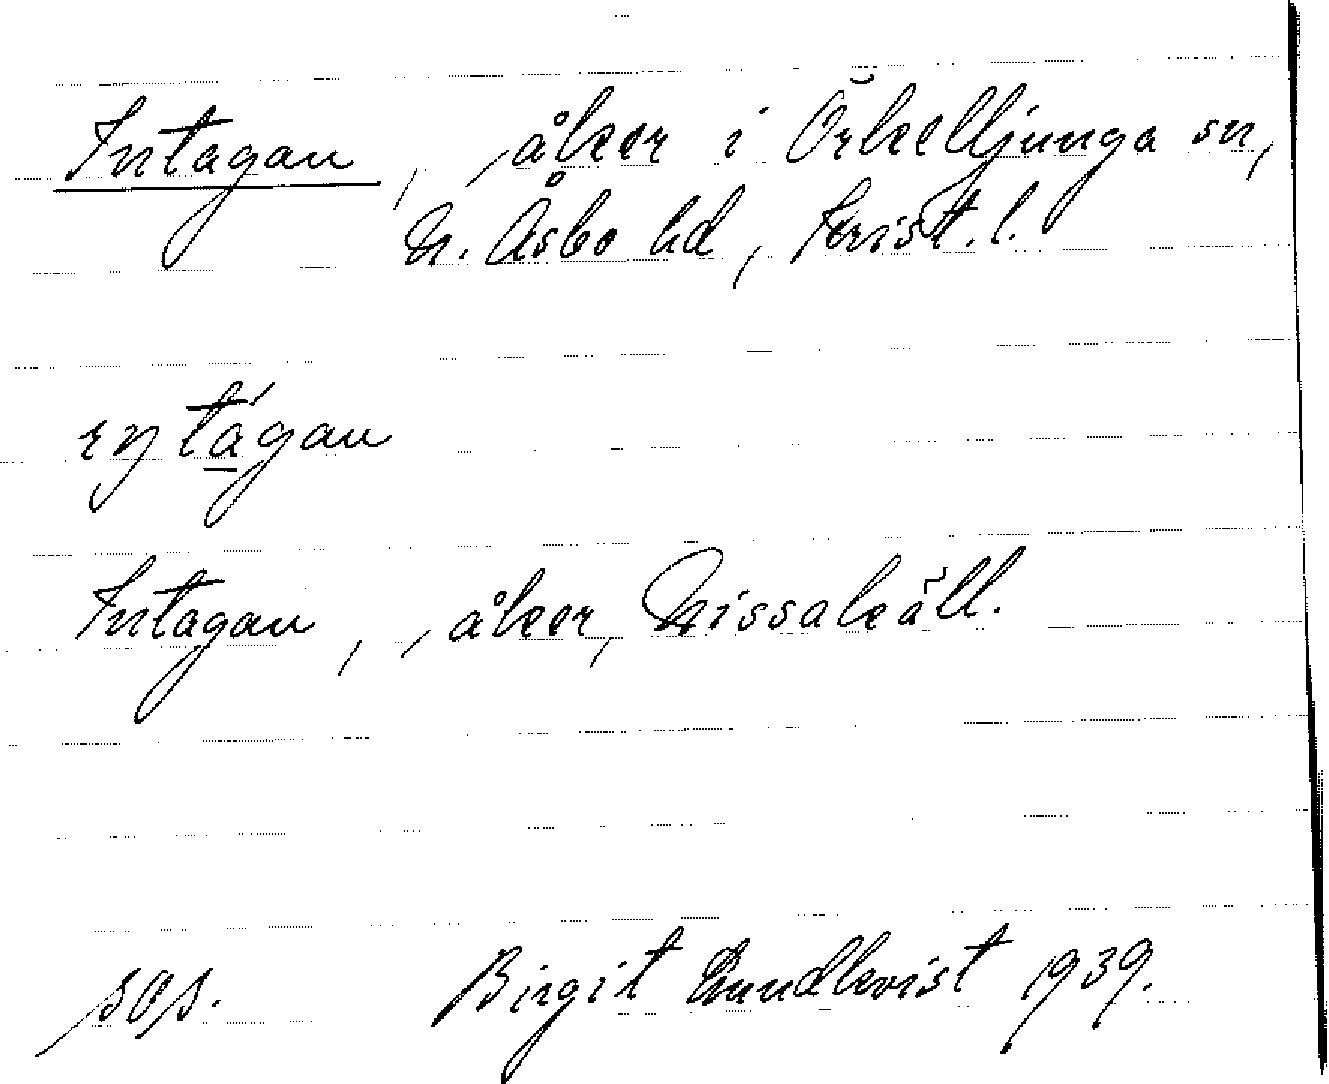 Intagan, , åker i Örkelljunga sn,
N. Åsbo hd, Krist. l.
Intagan, , åker, Nissakäll.
Birgit Lundkvist 1939.